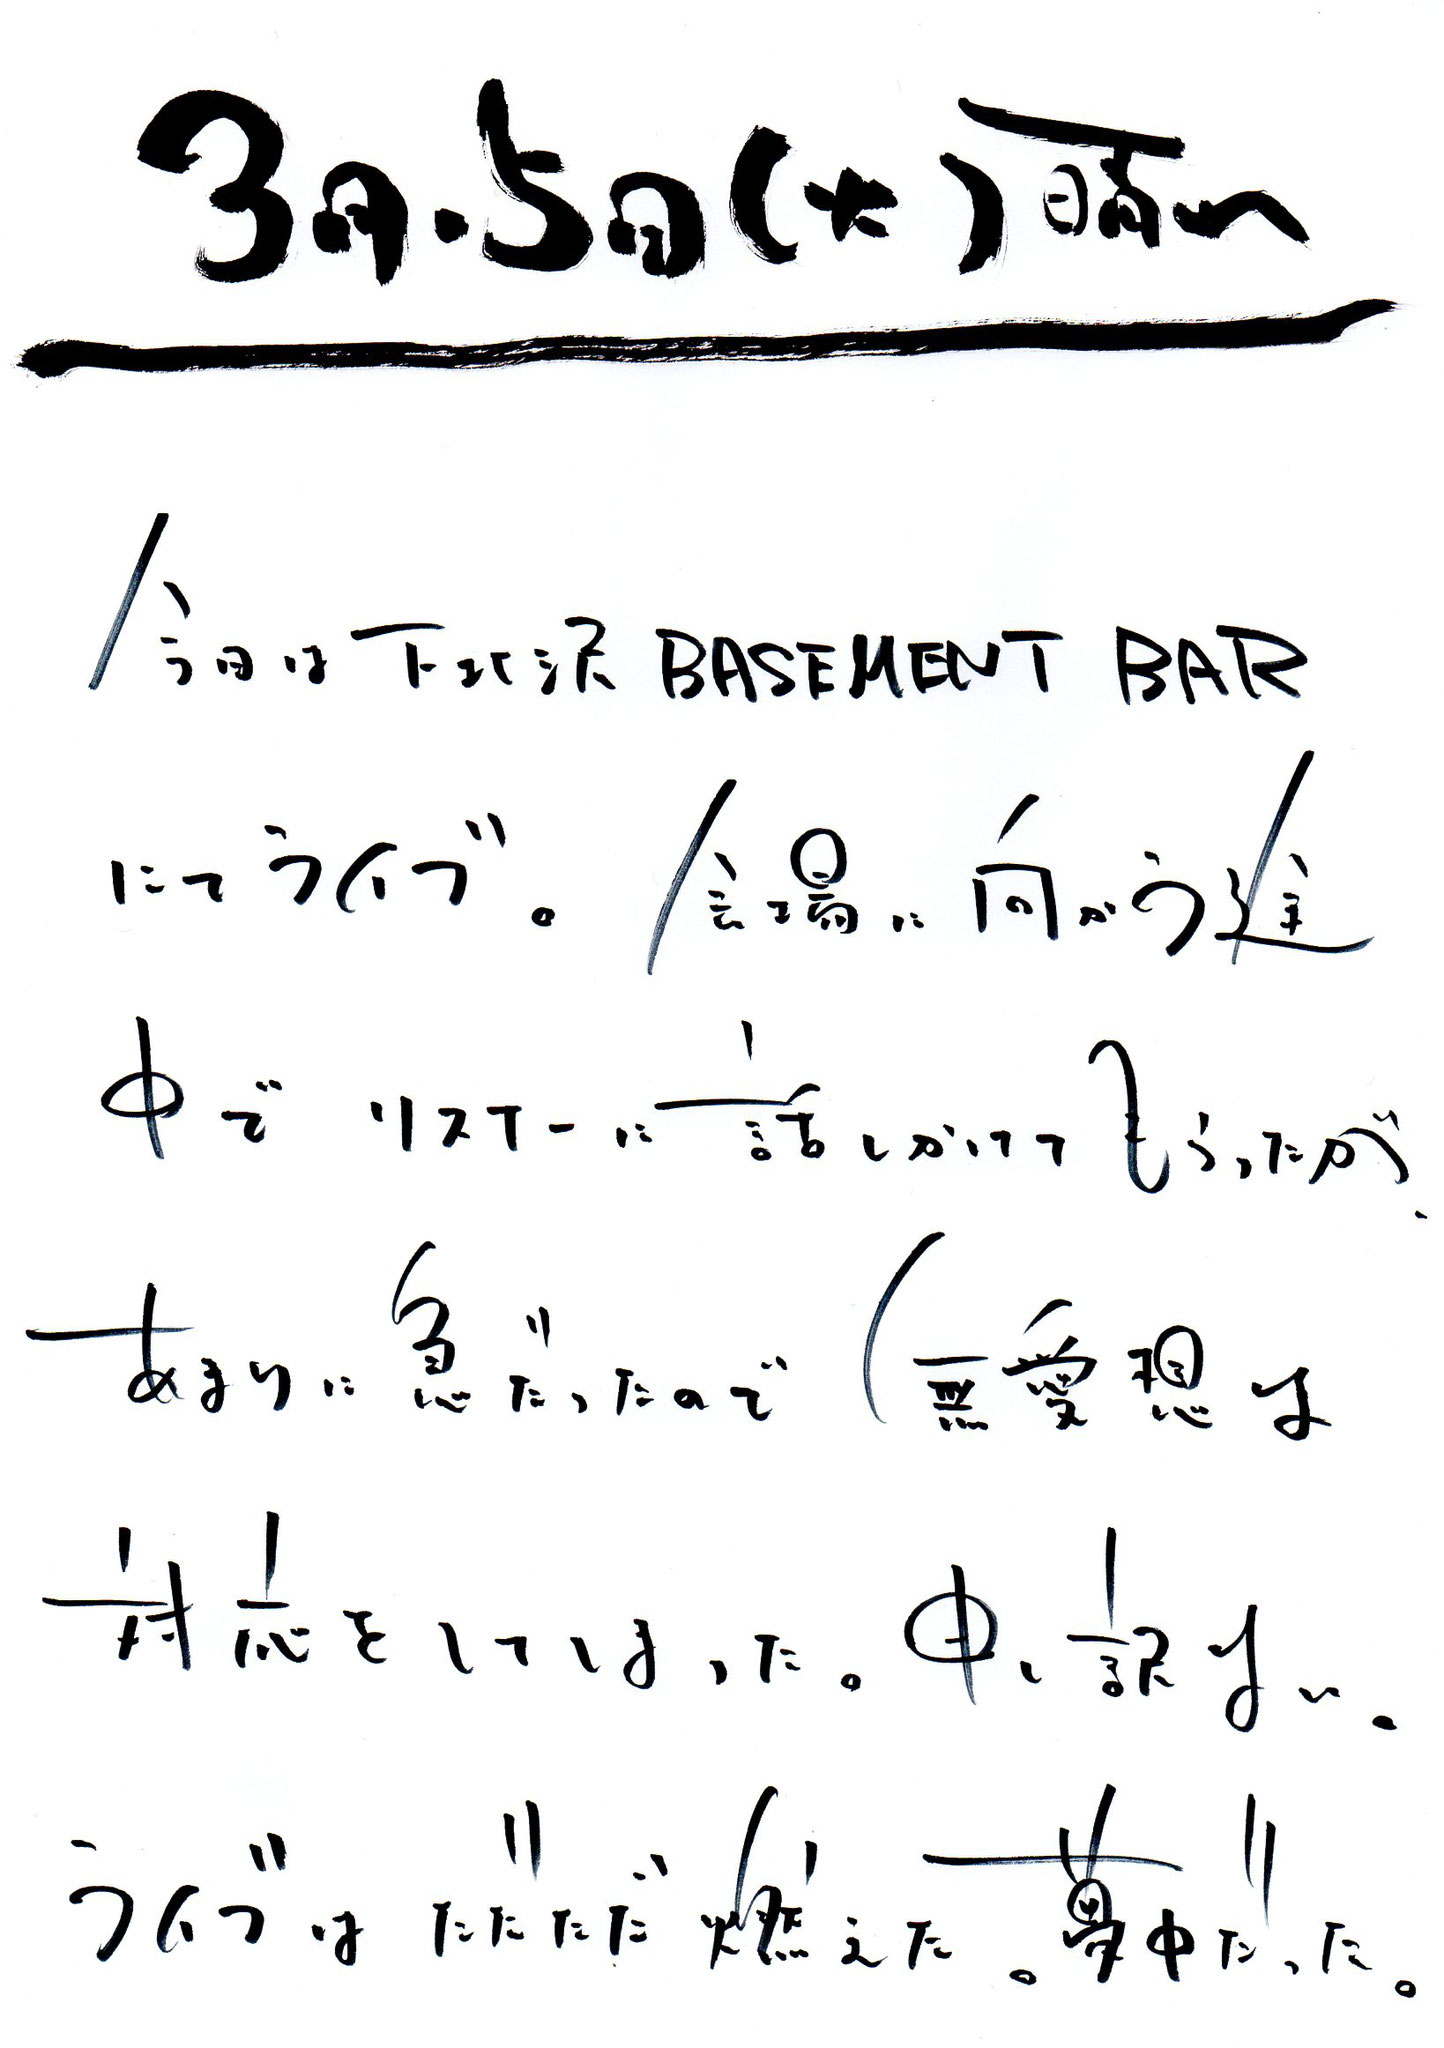 3月.5日(火)
今日は下北沢 BASEMENT BAR
にてライブ。会場に向かう途
中でリスナーに話しかけてもらったが、
あまりに急だったので無愛想な
対応をしてしまった。申し訳ない。
ライブはただただ燃えた。夢中だった。